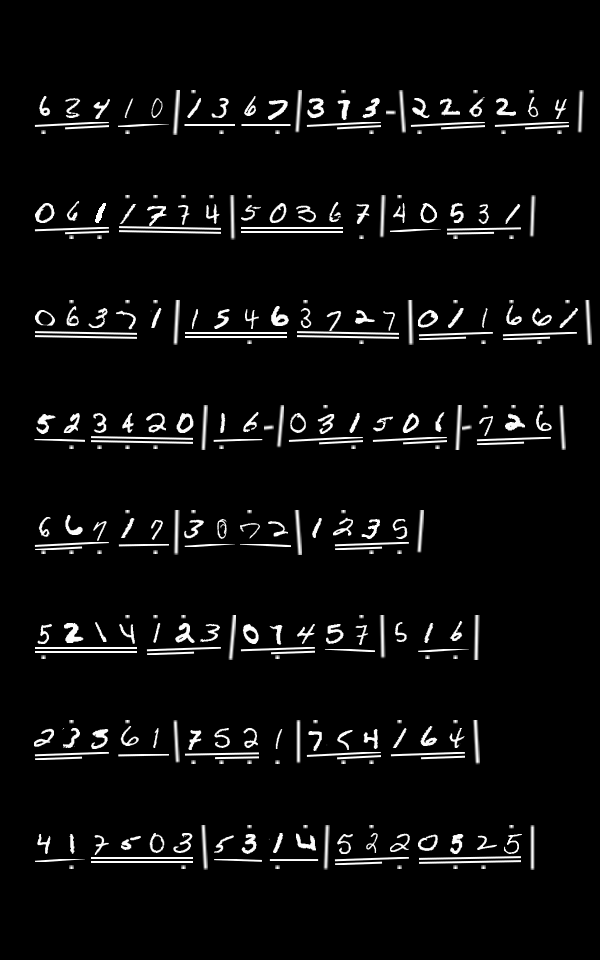 63410|1367|373-|226264
0611774|50367|40531
06371|15463727|011661
523420|16-|031501|-726
66717|3072|1235
5214123|07457|516
23361|7521|754164
417503|5314|5220525